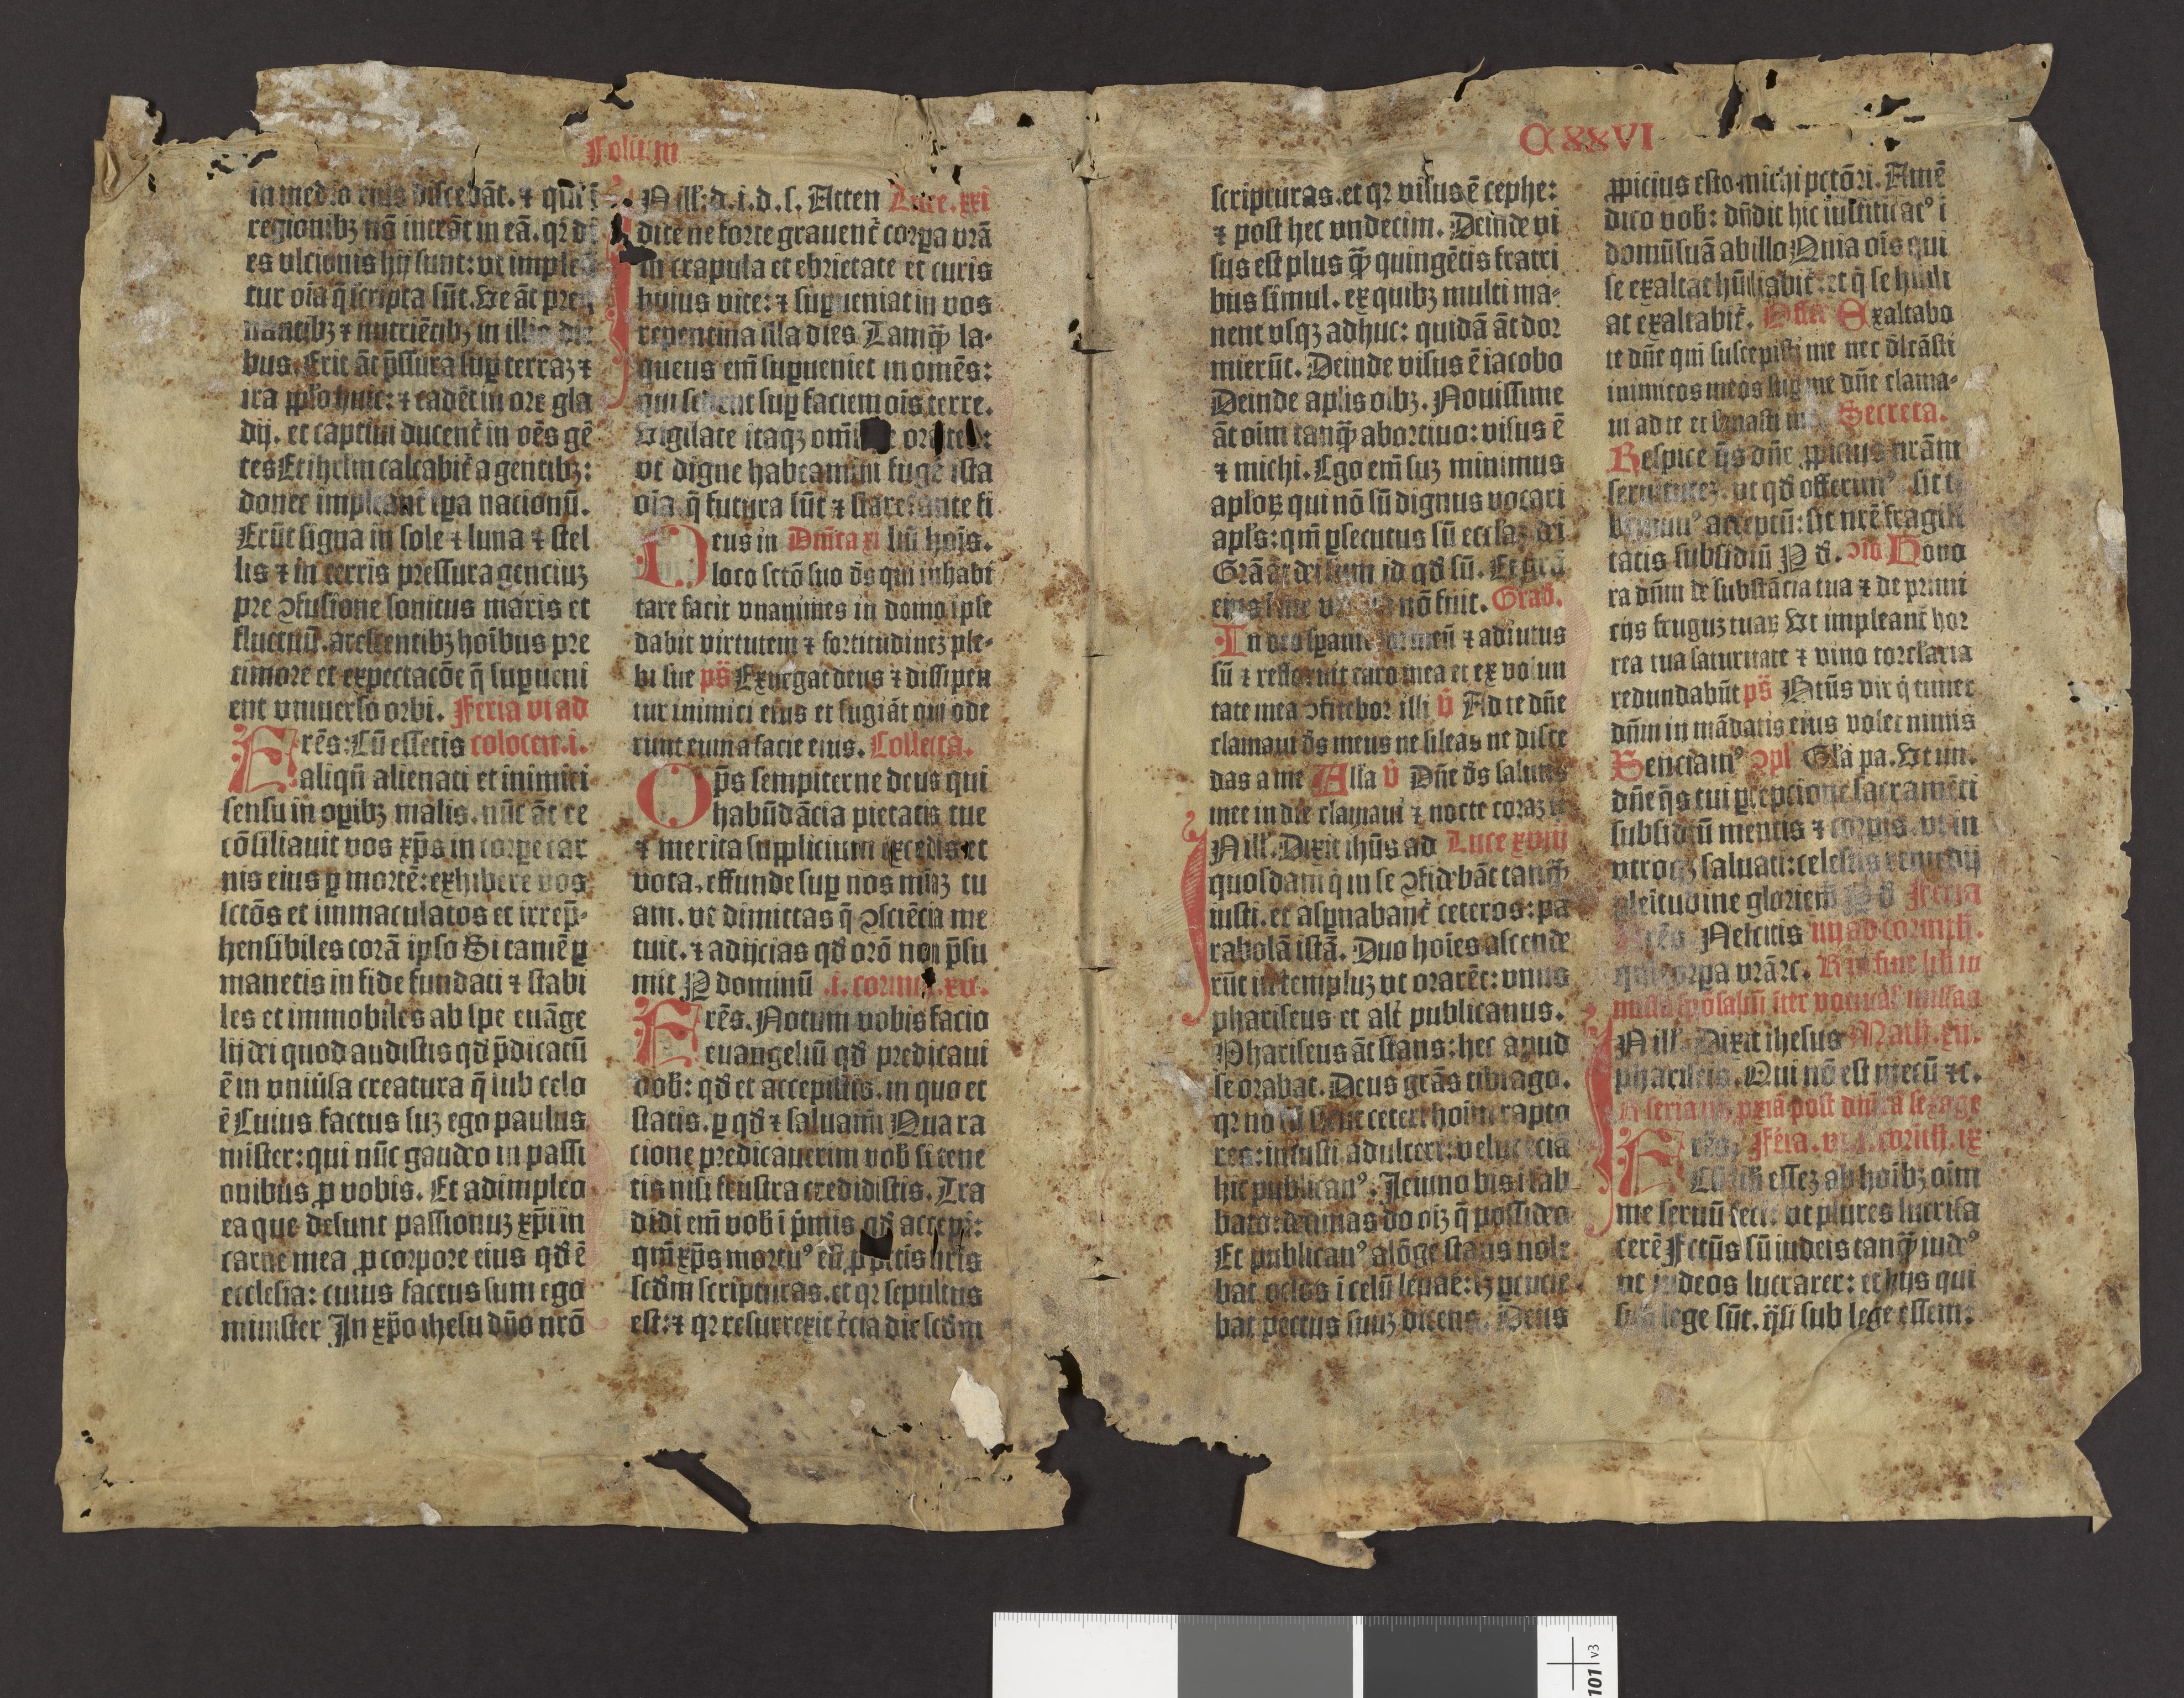 Folium
CXXVI
in medio eius discedāt. ⁊ qui ī
regionibꝫ nō intrēt in eā. qꝛ di
es vlcionis hij sunt: vt implea
tur oīa q̄ scripta sūt. Ve āt preg
nantibꝫ ⁊ nutriētibꝫ in illis die
bus. Erit āt p̄ssura suꝑ terraꝫ ⁊
ira pplo huic: ⁊ cadēt in ore gla
dij. et captiui ducent᷑ in oēs gē
tes Et ihrlm calcabit᷑ a gentibꝫ:
donec impleant᷑ tꝑa nacionū.
Erūt signa in sole ⁊ luna ⁊ stel
lis ⁊ in terris pressura genciuꝫ
pre ꝯfusione sonitus maris et
fluctuū. arescentibꝫ hoībus pre
timore et expectacōe q̄ suꝑueni
ent vniuerso orbi. Feria vi ad
Frēs: Cū essetis colocen. i.
aliqn̄ alienati et inimici
sensu in oꝑibꝫ malis. nūc āt re
cōsiliauit vos xp̄s in corꝑe car
nis eius ꝑ mortē: exhibere vos
sctōs et immaculatos et irrep̄-
hensibiles corā ipso Si tamē ꝑ
manetis in fide fundati ⁊ stabi
les et immobiles ab spe euāge
lij dei quod audistis qd̄ p̄dicatū
ē in vniūsa creatura q̄ sub celo
ē Cuius factus suꝫ ego paulus
mister: qui nūc gaudeo in passi
onibus ꝓ vobis. Et adimpleo
ea que desunt passionuꝫ xp̄i in
carne mea ꝓ corpore eius qd̄ ē
ecclesia: cuius factus sum ego
minister In xp̄o ihesu dn̄o nrō
In ill̕: d. i. d. s. Atten Luce. xxi
dite ne forte grauent᷑ corꝑa vrā
in crapula et ebrietate et curis
huius vite: ⁊ suꝑueniat in vos
repentina illa dies Tamqꝫ la-
queus em̄ suꝑueniet in omēs:
qui sedent suꝑ faciem oīs terre.
Vigilate itaqꝫ
vt digne habeamini fuge ista
oīa q̄ futura sūt ⁊ stare ante fi
Deus in Dn̄ica xi liū hoīs.
loco sctō suo ds̄ qui inhabi
tare facit vnanimes in domo ipse
dabit virtutem ⁊ fortitudineꝫ ple-
bi sue ps̄ Exurgat deus ⁊ dissipen
tur inimici eius et fugiāt qui ode
runt eum a facie eius. Collecta.
Op̄s sempiterne deus qui
habūdācia pietatis tue
⁊ merita supplicium excedis et
vota, effunde suꝑ nos miāꝫ tu
am. vt dimittas q̄ ꝯsciēcia me
tuit. ⁊ adijcias qd̄ orō non p̄su
mit P dominū .i. corint. xv.
Frēs. Notum vobis facio
euangeliū qd̄ predicaui
vob: qd̄ et accepistis. in quo et
statis. ꝑ qd̄ ⁊ saluam̄i Qua ra
cione predicauerim vob̄ si tene
tis nisi frustra credidistis. Tra
didi em̄ vob̄ i p̄mis qd̄ accepi:
qm̄ xp̄s mortuꝰ
scdm scripturas. et qꝛ sepultus
est: ⁊ qꝛ resurrexit t᷑cia die scdm
scripturas. et qꝛ visus ē cephe:
⁊ post hec vndecim. Deinde vi
sus est plus qꝫ quingētis fratri
bus simul. ex quibꝫ multi ma-
nent vsqꝫ adhuc: quidā āt dor
mierūt. Deinde visus ē iacobo
Deinde aplis oībꝫ. Nouissime
āt oīm tanqꝫ abortiuo: visus ē
⁊ michi. Ego em̄ suꝫ minimus
aploꝝ qui nō sū dignus vocari
apl̕s: qm̄ ꝑsecutus sū ecclaꝫ di
Grā āt dei sum id qd̄ sū. Et grā
eius nō fuit. Grad.
In deo sꝑauit cor meū ⁊ adiutus
sū ⁊ refloruit caro mea et ex volun
tate mea ꝯfitebor illi v̄ Ad te dn̄e
clamaui ds̄ meus ne sileas ne disce
das a me Alla v̄ Dn̄e ds̄ salutis
mee in die clamaui ⁊ nocte coraꝫ te
In ill̕. Dixit ihūs ad Luce xviii
quosdam q̄ in se ꝯfidebāt tanqꝫ
iusti. et asꝑnabant᷑ ceteros: pa
rabolā istā. Duo hoīes ascende
rūt in templuꝫ vt orarēt: vnus
phariseus et alt᷑ publicanus.
Phariseus āt stans: hec apud
se orabat. Deus grās tibi ago.
qꝛ nō sū sicut ceteri hoīm rapto
res: iniusti adulteri: velut eciā
hic publicanꝰ. Ieiuno bis i sab
bato: decimas do oīꝫ q̄ possideo
Et publicanꝰ alōge stans nole
bat oclos i celū leuare: sꝫ ꝑcucie
bat pectus suuꝫ dicens. Deus
ꝓpicius esto michi pctōri. Amē
dico vob: dn̄dit hic iustificatꝰ i
domū suā ab illo Quia oīs qui
se exaltat hūiliabit᷑: et q̄ se hūili
at exaltabit᷑. Offer̄ Exaltabo
te dn̄e qm̄ suscepisti me nec dl̄cāsti
inimicos meos suꝑ me dn̄e clama-
ui ad te et sanasti me Secreta.
Respice q̄s dn̄e ꝓpicius nrām
seruituteꝫ. vt qd̄ offerimꝰ sit ti
bi munꝰ acceptū: sit nrē fragili
tatis subsidiū P d̄. ꝯio Hono
ra dn̄m de substācia tua ⁊ de primi
cijs frugūꝫ tuaꝝ Vt impleant᷑ hor
rea tua saturitate ⁊ vino torclaria
redundabūt ps̄ Btūs vir q̄ timet
dn̄m in mādatis eius volet nimis
Senciamꝰ ꝯpl Gl̕a pa. Vt im.
dn̄e q̄s tui ꝑcepcione sacramēti
subsidiū mentis ⁊ corꝑis. vt in
vtroqꝫ saluati: celestis remedij
plēitudine gloriem̄ P d̄ Feria
Frēs Nescitis iiij ad corinth.
qm̄ corꝑa vrā ꝛc.
In ill̕. Dixit ihesus Math. xij.
phariseis. Qui nō est mecū ⁊c.
feria post dn̄icā sexage
Frēs: Fēia. vi. i. corith. ix
Cū liber esseꝫ ab hoībꝫ oīm
me seruū feci: vt plures lucrifa
cerē Fctūs sū iudeis tanqꝫ iudꝰ
vt iudeos lucrarer: et hijs qui
sub lege sūt. q̄si sub lege essem: